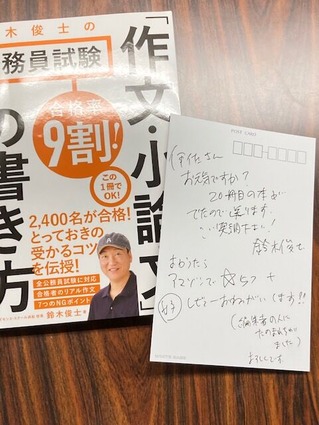 木俊士の
務員試験
「作文・小論文」
の書き方
合格率
9割!
この
1冊で
OK!
2,400名が合格!
とっておきの
受かるコツ
を伝授!
全公務員試験に対応
合格者のリアル作文
7つのNGポイント
鈴木俊士 著
POST CARD
さん
お元気ですか?
20冊目の本が
でたので送ります。
鈴木俊士
アマゾンで☆5つ+
好
レビューおねがいします!!
(編集者の人に
たのまれちゃい
ました)